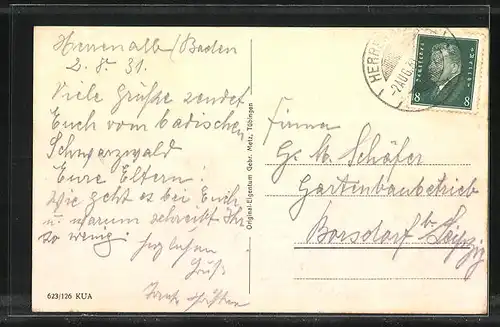 Herrenalb/Baden
2. 8. 31.
Viele Grüße sendet
Euch vom badischen
Schwarzwald
Eure Eltern!
Wie geht es bei Euch
u. warum schreibt Ihr
so wenig!
Gruß
623/126 KUA
Original-Eigentum Gebr. Metz, Tübingen
HERRE
-2.AUG.3
DEUTSCHES REICH
8 8
Firma
G. M. Schäfer
Gartenbaubetrieb
Borsdorf b. Leipzig